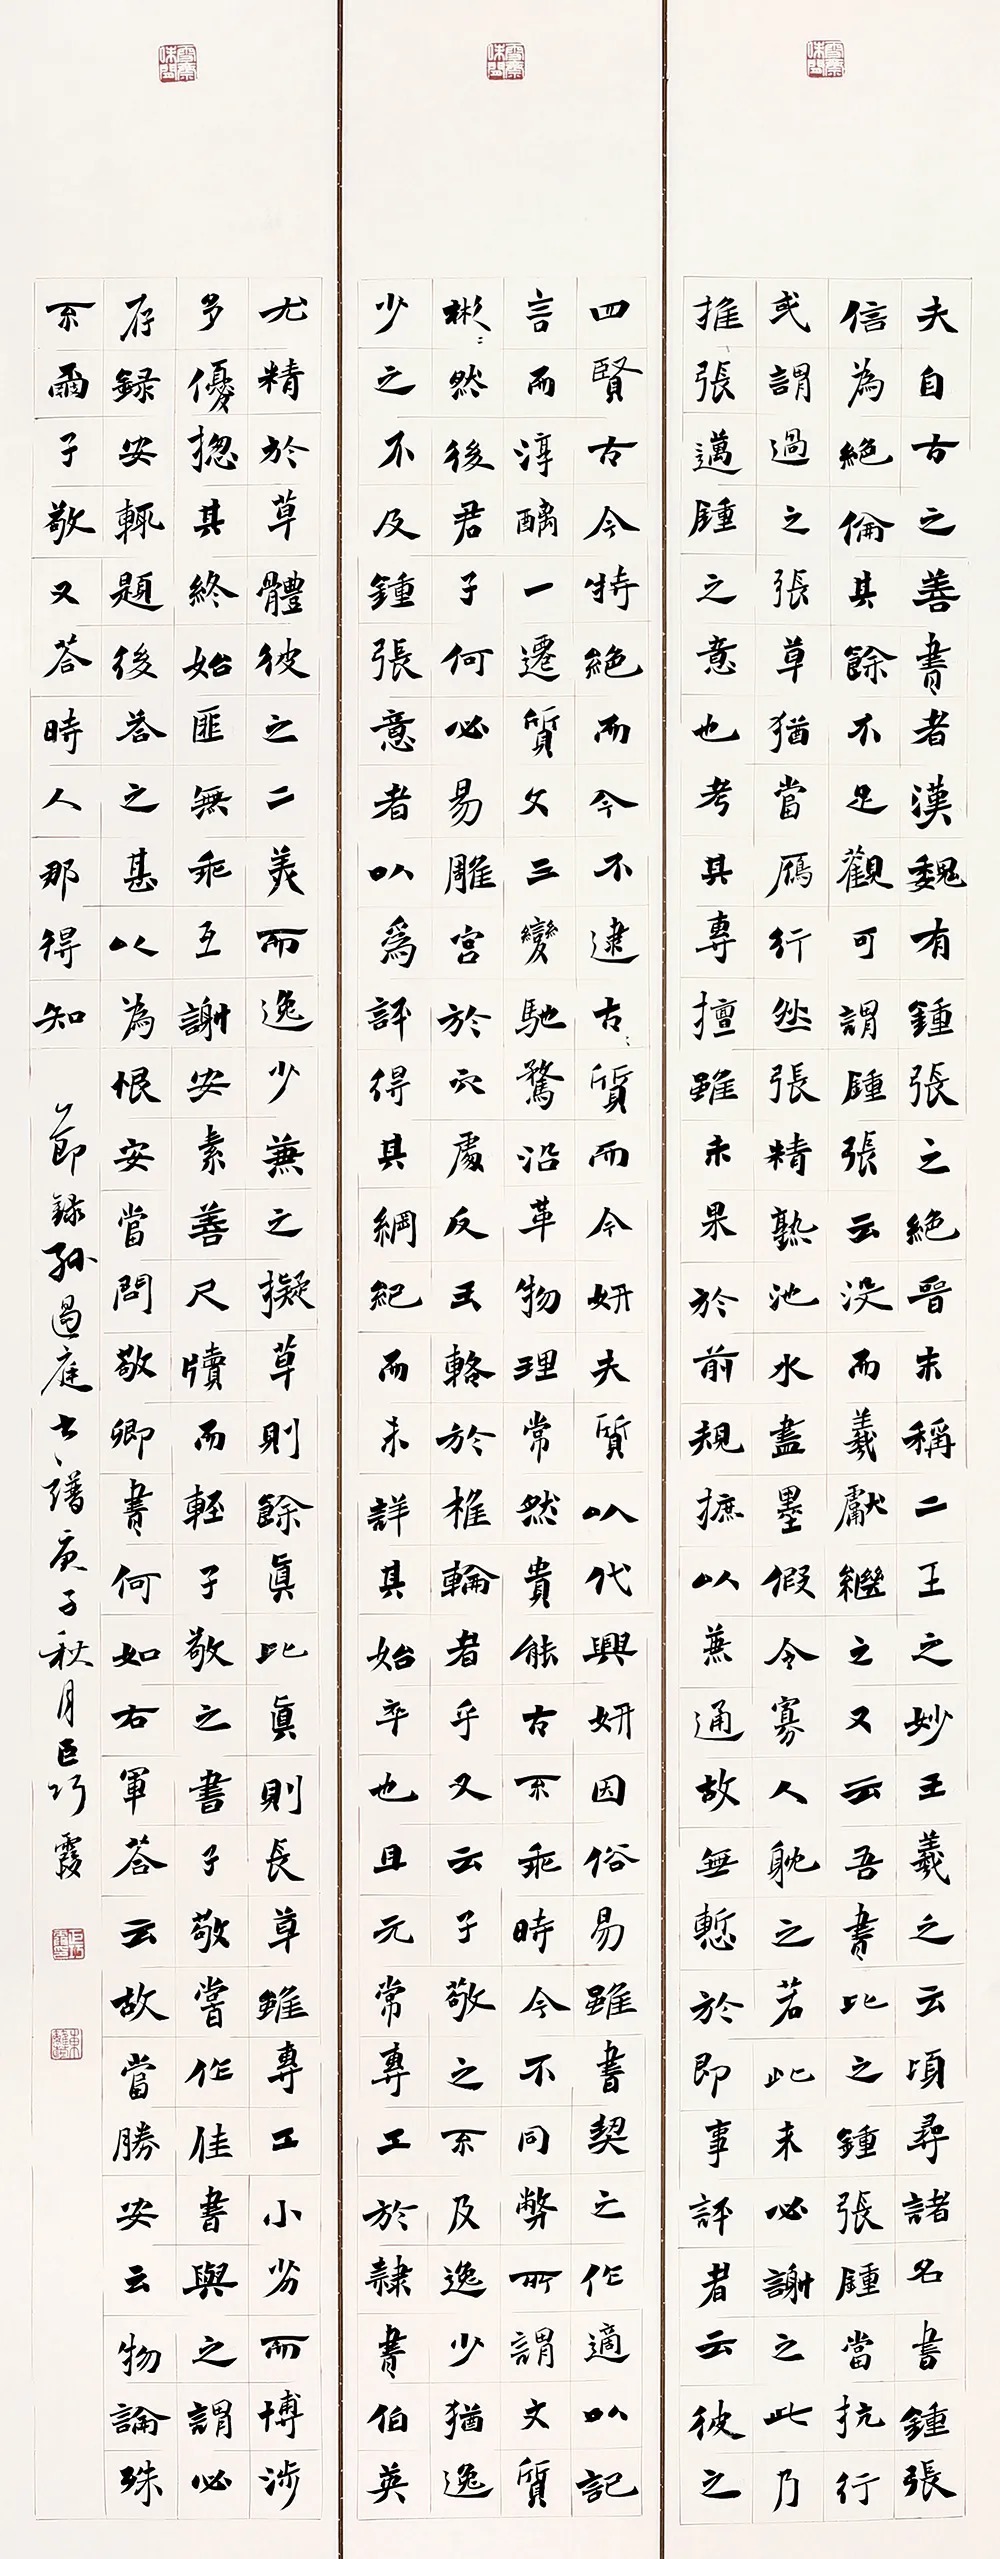 夫自古之善書者漢魏有鍾張之絕晉末稱二王之妙王羲之云頃尋諸名書鍾張
信為絕倫其餘不足觀可謂鍾張云沒而羲獻繼之又云吾書比之鍾張鍾當抗行
或謂過之張草猶當鴈行然張精熟池水盡墨假令寡人耽之若此未必謝之此乃
推張邁鍾之意也考其專擅雖未果於前規摭以兼通故無慙於即事評者云彼之
四賢古今特絕而今不逮古質而今妍夫質以代興妍因俗易雖書契之作適以記
言而淳醨一遷質文三變馳騖沿革物理常然貴能古不乖時今不同弊所謂文質
彬〻然後君子何必易雕宮於穴處反玉輅於椎輪者乎又云子敬之不及逸少猶逸
少之不及鍾張意者以為評得其綱紀而未詳其始卒也且元常專工於隸書伯英
尤精於草體彼之二美而逸少兼之擬草則餘真比真則長草雖專工小劣而博涉
多優揔其終始匪無乖互謝安素善尺牘而輕子敬之書子敬嘗作佳書與之謂必
存錄安輒題後答之甚以為恨安嘗問敬卿書何如右軍答云故當勝安云物論殊
不爾子敬又答時人那得知 節錄孫過庭書譜庚子秋月巨巧霞